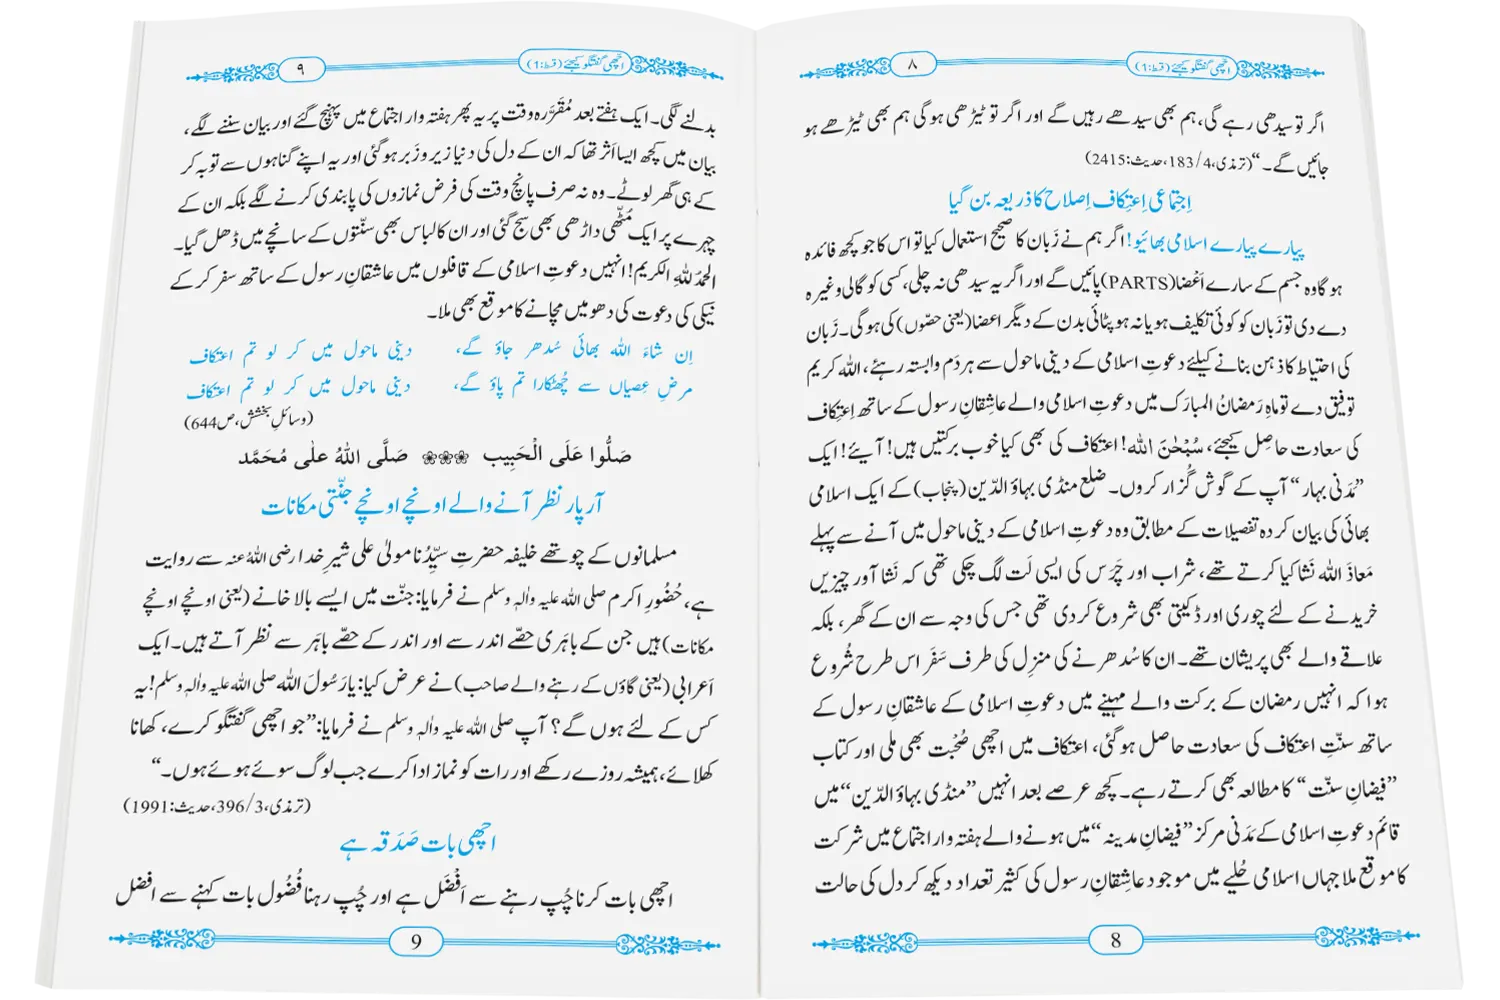 اچھی گفتگو کیجئے (قسط:1)
۸
اگر تو سیدھی رہے گی، ہم بھی سیدھے رہیں گے اور اگر تو ٹیڑھی ہو گی ہم بھی ٹیڑھے ہو
جائیں گے۔“ (ترمذی،4/183،حدیث:2415)
اِجتماعی اِعتِکاف اِصلاح کا ذریعہ بن گیا
پیارے پیارے اسلامی بھائیو! اگر ہم نے زَبان کا صحیح استعمال کیا تو اس کا جو کچھ فائدہ
ہو گا وہ جسم کے سارے اَعْضا(PARTS) پائیں گے اور اگر یہ سیدھی نہ چلی، کسی کو گالی وغیرہ
دے دی تو زَبان کو کوئی تکلیف ہو یا نہ ہو پٹائی بدن کے دیگر اعضا (یعنی حصّوں) کی ہو گی۔ زَبان
کی احتیاط کا ذہن بنانے کیلئے دعوتِ اسلامی کے دینی ماحول سے ہر دَم وابستہ رہئے، اللہ کریم
توفیق دے تو ماہِ رَمضانُ المبارَک میں دعوتِ اسلامی والے عاشِقانِ رسول کے ساتھ اِعتِکاف
کی سعادت حاصِل کیجئے، سُبْحٰنَ اللہ! اعتکاف کی بھی کیا خوب برکتیں ہیں! آیئے! ایک
”مَدَنی بہار“ آپ کے گوش گُزار کروں۔ ضلع منڈی بہاؤ الدّین (پنجاب) کے ایک اسلامی
بھائی کی بیان کردہ تفصیلات کے مطابق وہ دعوتِ اسلامی کے دینی ماحول میں آنے سے پہلے
مَعاذَ اللہ نَشا کیا کرتے تھے، شراب اور چَرَس کی ایسی لَت لگ چکی تھی کہ نَشا آور چیزیں
خریدنے کے لئے چوری اور ڈکیتی بھی شروع کر دی تھی جس کی وجہ سے ان کے گھر، بلکہ
علاقے والے بھی پریشان تھے۔ ان کا سُدھرنے کی منزِل کی طرف سَفَر اس طرح شُروع
ہوا کہ انہیں رمضان کے برکت والے مہینے میں دعوتِ اسلامی کے عاشقانِ رسول کے
ساتھ سنّتِ اعتکاف کی سعادت حاصل ہو گئی، اعتکاف میں اچھی صُحْبَت بھی ملی اور کتاب
”فیضانِ سنّت“ کا مطالعہ بھی کرتے رہے۔ کچھ عرصے بعد انہیں ”منڈی بہاؤ الدّین“ میں
قائم دعوتِ اسلامی کے مَدَنی مرکز ”فیضانِ مدینہ“ میں ہونے والے ہفتہ وار اجتماع میں شرکت
کا موقع ملا جہاں اسلامی حُلیے میں موجود عاشِقانِ رسول کی کثیر تعداد دیکھ کر دل کی حالت
8
اچھی گفتگو کیجئے (قسط:1)
۹
بدلنے لگی۔ ایک ہفتے بعد مُقَرَّرہ وقت پر یہ پھر ہفتہ وار اجتماع میں پہنچ گئے اور بیان سننے لگے،
بیان میں کچھ ایسا اَثر تھا کہ ان کے دل کی دنیا زیر و زَبر ہو گئی اور یہ اپنے گناہوں سے توبہ کر
کے ہی گھر لوٹے۔ وہ نہ صرف پانچ وقت کی فرض نمازوں کی پابندی کرنے لگے بلکہ ان کے
چہرے پر ایک مُٹّھی داڑھی بھی سج گئی اور ان کا لباس بھی سنّتوں کے سانچے میں ڈھل گیا۔
الحمدُ لِلّٰہِ الکریم! انہیں دعوتِ اسلامی کے قافلوں میں عاشقانِ رسول کے ساتھ سفر کر کے
نیکی کی دعوت کی دھومیں مچانے کا موقع بھی ملا۔
اِن شاءَ اللہ بھائی سُدھر جاؤ گے، دینی ماحول میں کر لو تم اعتکاف
مرضِ عِصیاں سے چُھٹکارا تم پاؤ گے، دینی ماحول میں کر لو تم اعتکاف
(وسائلِ بخشش،ص644)
صَلُّوا عَلَی الْحَبِیب ❀❀❀ صَلَّی اللہُ عَلٰی مُحَمَّد
آر پار نظر آنے والے اونچے اونچے جنّتی مکانات
مسلمانوں کے چوتھے خلیفہ حضرتِ سیِّدُنا مولیٰ علی شیرِ خدا رضی اللہُ عنہ سے روایت
ہے، حُضُورِ اکرم صلی اللہ علیہ واٰلہٖ وسلم نے فرمایا: جنّت میں ایسے بالا خانے (یعنی اونچے اونچے
مکانات) ہیں جن کے باہَری حصّے اندر سے اور اندر کے حصّے باہَر سے نظر آتے ہیں۔ ایک
اَعرابی (یعنی گاؤں کے رہنے والے صاحب) نے عرض کیا: یا رَسُولَ اللہ صلی اللہ علیہ واٰلہٖ وسلم! یہ
کس کے لئے ہوں گے؟ آپ صلی اللہ علیہ واٰلہٖ وسلم نے فرمایا: ”جو اچھی گفتگو کرے، کھانا
کھلائے، ہمیشہ روزے رکھے اور رات کو نماز ادا کرے جب لوگ سوئے ہوئے ہوں۔“
(ترمذی،3/396،حدیث:1991)
اچھی بات صَدَقہ ہے
اچھی بات کرنا چُپ رہنے سے اَفْضَل ہے اور چُپ رہنا فُضُول بات کہنے سے افضل
9